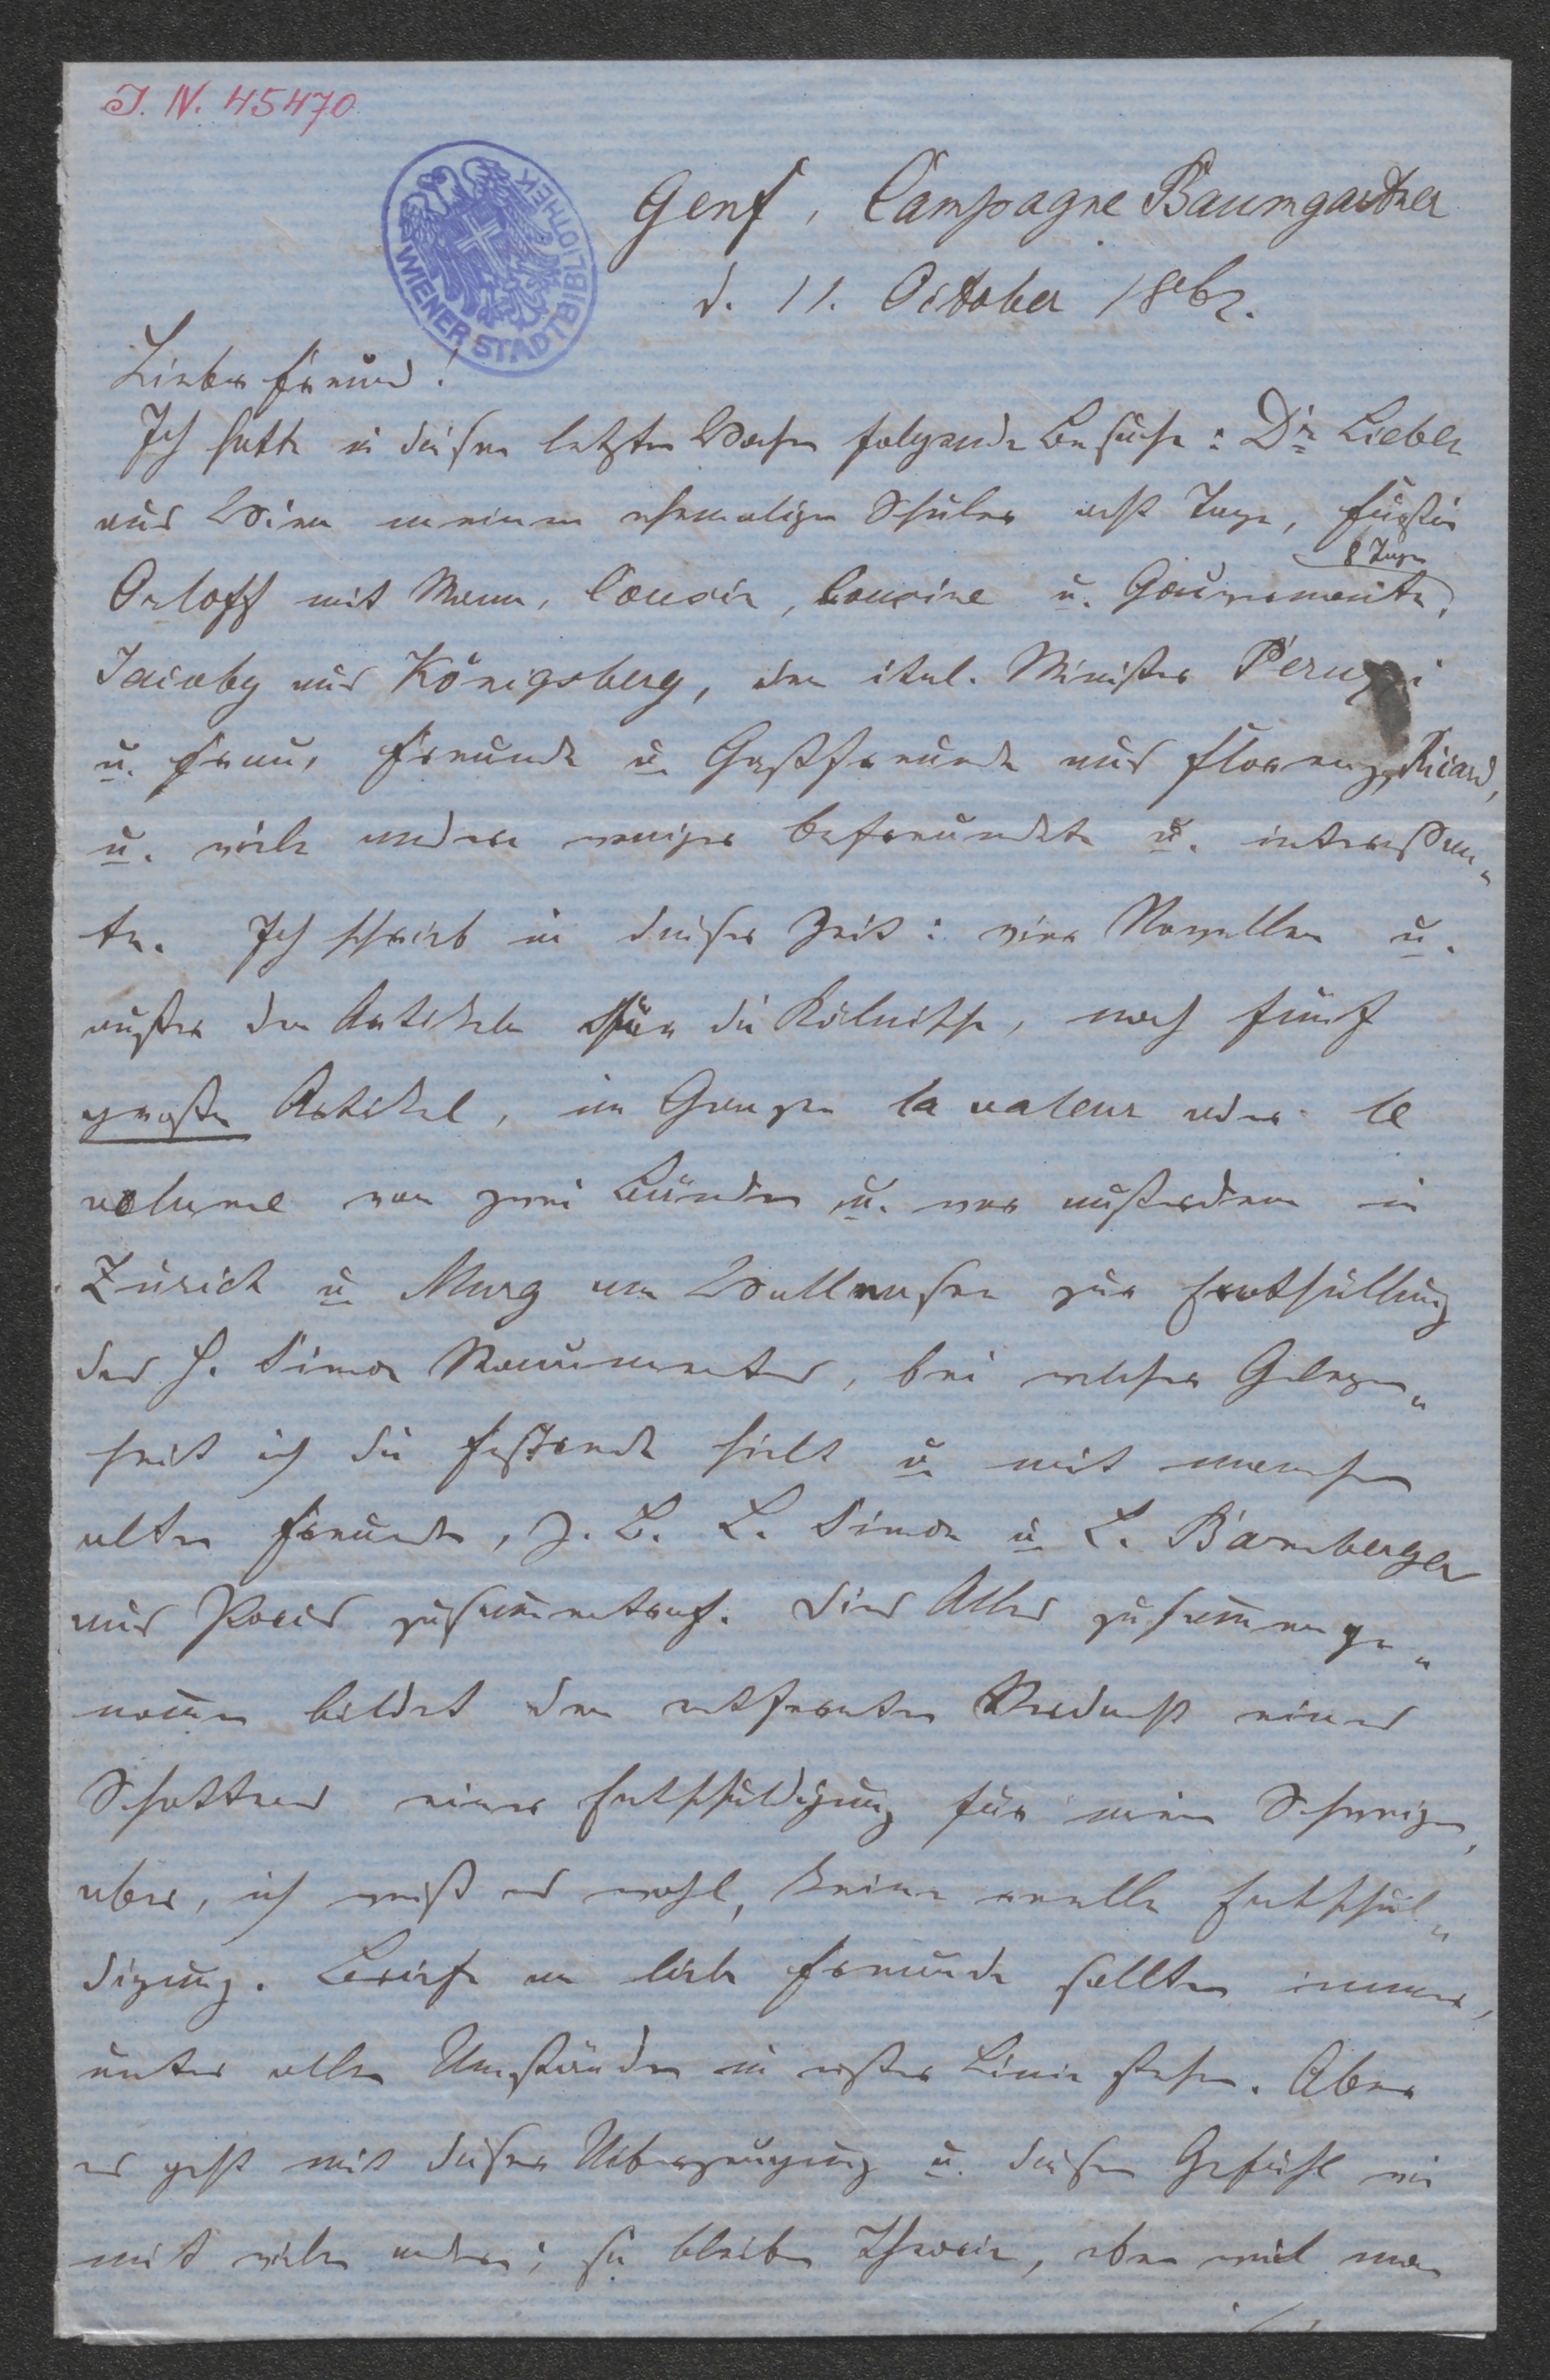 J. N. 45470
WIENER STADTBIBLIOTHEK
Genf, Campagne Baumgartner
d. 11. October 1862.
Lieber Freund!
Ich hatte in diesen letzten Wochen folgende Besuche: Dr Lieben
aus Wien meinen ehemaligen Schüler acht Tage, Fürstin
8 Tage
Orloff mit Mann, Cousin, Cousine u. Gouvernante,
Jacoby aus Königsberg, den ital. Minister Peruzzi
u. Frau, Freunde u Gastfreunde aus Florenz, Ricard,
u. viele andere weniger befreundete u. interessan„
te. Ich schrieb in dieser Zeit: vier Novellen u.
außer den Artikeln für die Kölnische, noch fünf
große Artikel, im Ganzen la valeur oder le
volume von zwei Bänden u. war außerdem in
Zürich u Murg am Wallensee zur Enthüllung
des H. Simon Monumentes, bei welcher Gelegen„
heit ich die Festrede hielt u mit manchen
alten Freunden, z. B. L. Simon u L. Bamberger
aus Paris zusam̄entraf. Dies Alles zusam̄enge„
nom̄en bildet den entfernten Verdacht eines
Schattens einer Entschuldigung für mein Schweigen,
aber, ich weiß es wohl, keine reelle Entschul„
digung. Briefe an liebe Freunde sollten immer,
unter allen Umständen in erster Linie stehen. Aber
es geht mit dieser Ueberzeugung u. diesem Gefühl wie
mit vielen andern; sie bleiben Theorie, eben weil man